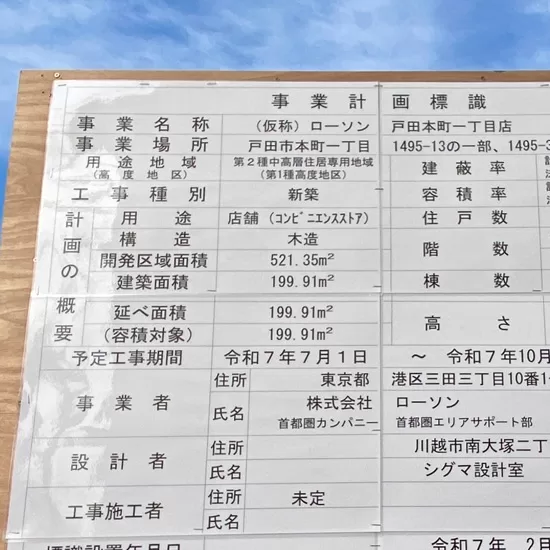 事業計画標識
事業名称 (仮称) ローソン 戸田本町一丁目店
事業場所 戸田市本町一丁目 1495-13の一部、1495-
用途地域 (高度地区) 第2種中高層住居専用地域 (第1種高度地区) 建蔽率
工事種別 新築 容積率
計画の概要
用途 店舗 (コンビニエンスストア) 住戸数
構造 木造 階数
開発区域面積 521.35m²
建築面積 199.91m² 棟数
延べ面積 199.91m² 高さ
(容積対象) 199.91m²
予定工事期間 令和7年7月1日 ～ 令和7年10月
事業者 住所 東京都 港区三田三丁目10番1
氏名 株式会社 ローソン
首都圏カンパニー 首都圏エリアサポート部
設計者 住所 川越市南大塚二丁
氏名 シグマ設計室
工事施工者 住所 未定
氏名
標識設置年月日 令和7年 2月